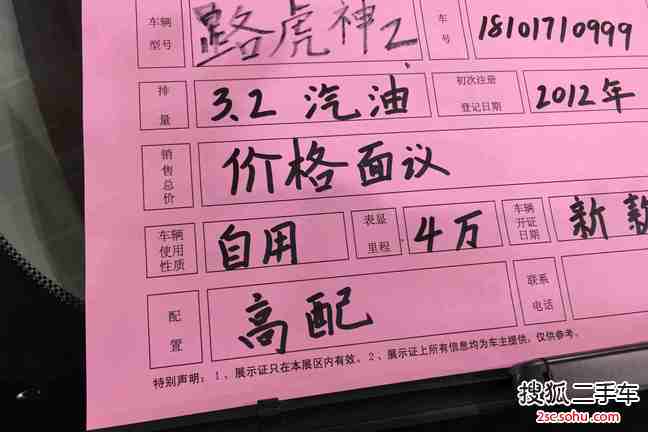 车辆型号 路虎神2 车号 18101710999
排量 3.2 汽油 初次注册登记日期 2012年
销售总价 价格面议
车辆使用性质 自用 表显里程 4万 车辆开证日期 新款
配置 高配 联系电话
特别声明：1、展示证只在本展区内有效。2、展示证上所有信息均为车主提供，仅供参考。
搜狐二手车
2sc.sohu.com